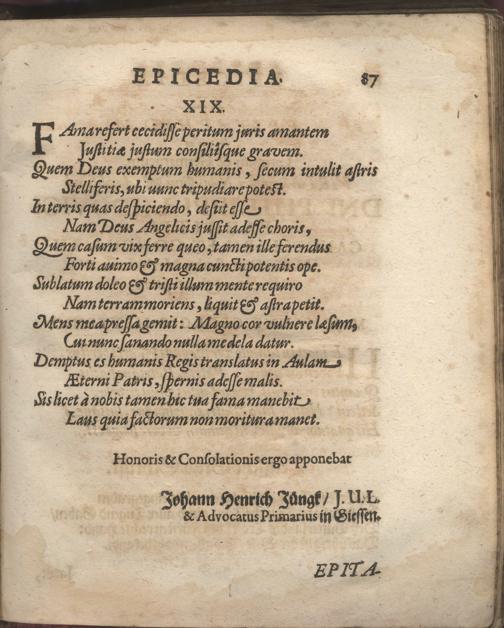 EPICEDIA. 87
XIX.
FAma refert cecidisse peritum juris amantem
Justitiæ justum consiliîsque gravem.
Quem Deus exemptum humanis, secum intulit astris
Stelliferis, ubi uunc tripudiare potest.
In terris quas despiciendo, desiit esse
Nam Deus Angelicis jussit adesse choris,
Quem casum vix ferre queo, tamen ille ferendus
Forti auimo & magna cunctipotentis ope.
Sublatum doleo & tristi illum mente requiro
Nam terram moriens, liquit & astra petit.
Mens mea pressa gemit: Magno cor vulnere læsum,
Cui nunc sanando nulla medela datur.
Demptus es humanis Regis translatus in Aulam
Æterni Patris, spernis adesse malis.
Sis licet à nobis tamen hic tua fama manebit
Laus quia factorum non moritura manet.
Honoris & Consolationis ergo apponebat
Johann Henrich Jüngk / J. U. L.
& Advocatus Primarius in Giessen.
EPITA-